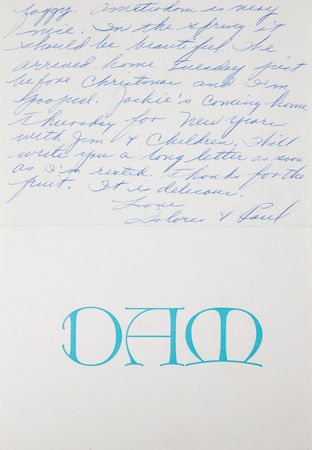 foggy. Amsterdam is very
nice. In the spring it
should be beautiful. We
arrived home Tuesday just
before Christmas and I'm
pooped. Jackie's coming home
Thursday for New Years
with Jim & Children. Will
write you a long letter as soon
as I'm rested. Thanks for the
fruit. It is delicious.
Love
Dolores & Paul
DAM